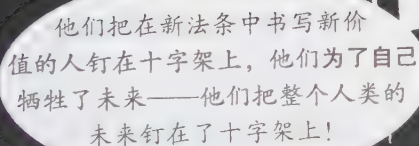 他们把在新法条中书写新价
值的人钉在十字架上，他们为了自己
牺牲了未来——他们把整个人类的
未来钉在了十字架上！